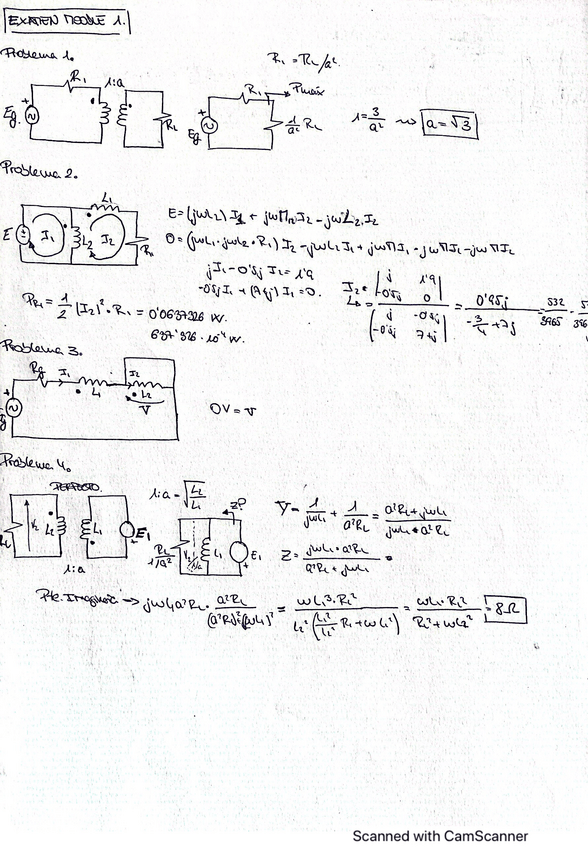 EXAMEN MODEL 1.
Problema 1.
R₁ = R_L/a²
R₁ 1:a
Eg
R_L
R₁ Pmaix
Eg
1/a² R_L
1 = 3/a² ⇝ a = √3
Problema 2.
L₁
E I₁ L₂ I₂ R₁
E = (jωL₂) I₁ + jωM I₂ - jωL₂ I₂
0 = (jωL₁ + jωL₂ + R₁) I₂ - jωL₂ I₁ + jωM I₁ - jωM I₂ - jωM I₂
jI₁ - 0'5j I₂ = 1'9
-0'5j I₁ + (7+j) I₂ = 0.
I₂ =
j 1'9
-0'5j 0
j -0'5j
-0'5j 7+j
= 0'95j / (-3/4 + 7j) = 532/3965
P_R1 = 1/2 |I₂|² · R₁ = 0'0637326 W.
637'326 · 10⁻⁴ W.
Problema 3.
Rg I₁ I₂
L₁ L₂
V
0V = V
Problema 4.
1:a = √(L₂/L₁)
V₂ L₂ L₁ E₁
1:a
Z?
R_L/(1/a²) L₁ E₁
Y = 1/(jωL₁) + 1/(a²R_L) = (a²R_L + jωL₁)/(jωL₁ · a²R_L)
Z = (jωL₁ · a²R_L)/(a²R_L + jωL₁) =
Pte. Imaginaria → jωL₁a²R_L · a²R_L/((a²R_L)²(ωL₁)²) = ωL₁³·R_L²/(L₂²(L₁²/L₂² R_L + ωL₁²)) = ωL₁·R_L²/(R_L² + ωL₂²) = 8Ω
Scanned with CamScanner